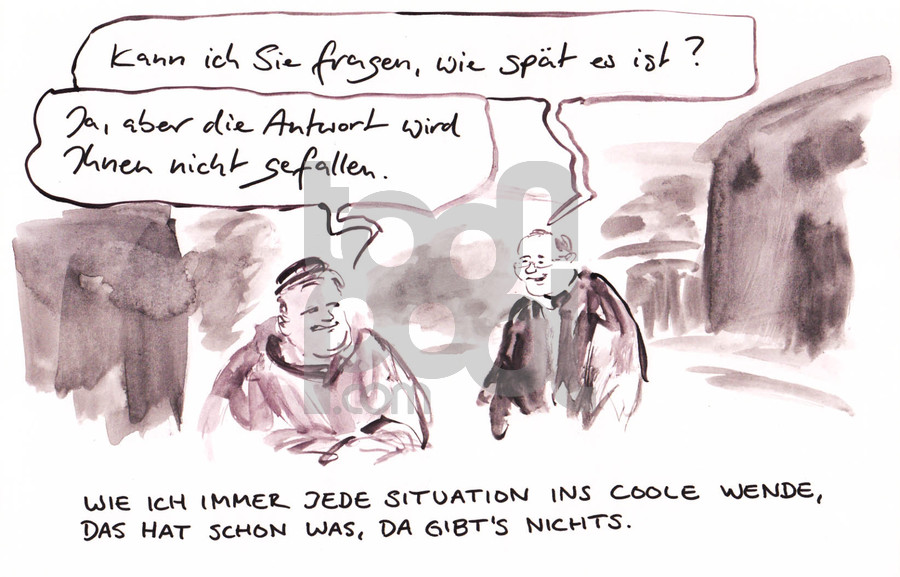 Kann ich Sie fragen, wie spät es ist?
Ja, aber die Antwort wird
Ihnen nicht gefallen.
toonpool.com
WIE ICH IMMER JEDE SITUATION INS COOLE WENDE,
DAS HAT SCHON WAS, DA GIBT'S NICHTS.